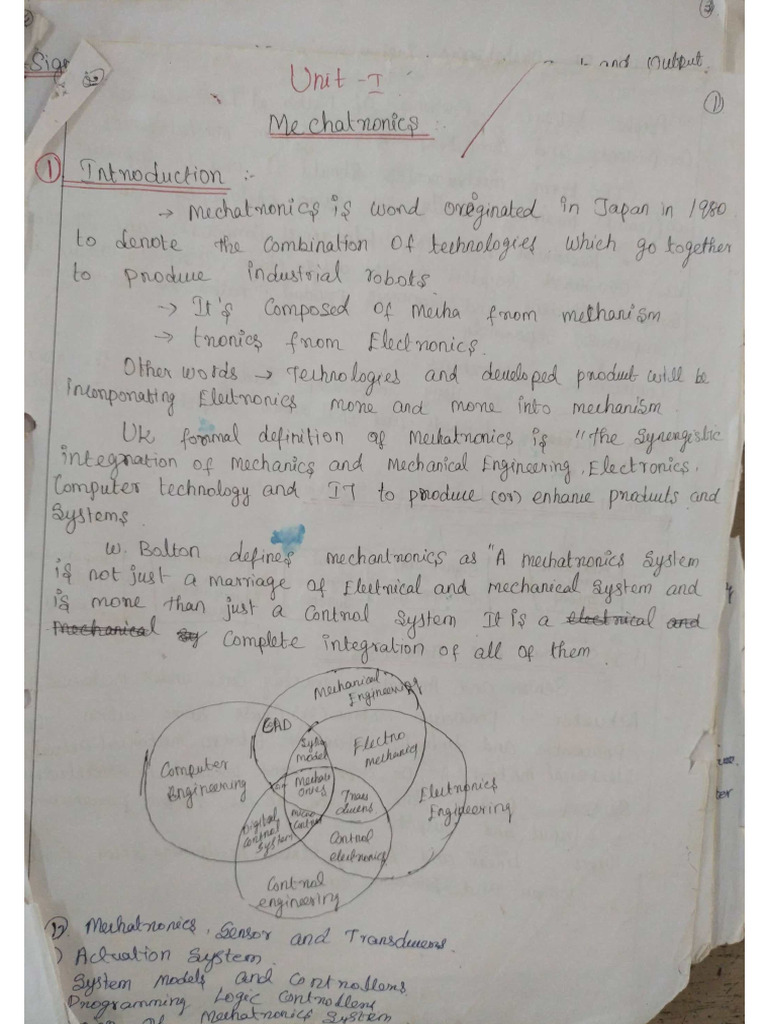 Sig
and Output.
Unit - I
①
Mechatronics :-
① Introduction :-
→ Mechatronics is word oreginated in Japan in 1980
to denote the Combination of technologies, which go together
to produce industrial robots.
→ It's Composed of Mecha from mechanism
→ tronics from Electronics.
Other words → Technologies and developed product will be
incorporating Electronics more and more into mechanism.
UK formal definition of Mechatronics is "the Synergistic
integration of Mechanics and Mechanical Engineering, Electronics,
Computer technology and IT to produce (or) enhance products and
Systems.
W. Bolton defines mechantronics as "A mechatronics System
is not just a marriage of Electrical and mechanical System and
is more than just a Control System It is a electrical and
Mechanical Sy Complete integration of all of them
Mechanical
Engineering
CAD
System
model
Electro
mechanic
Computer
Engineering
Mechatronics
Transducers
Electronics
Engineering
Digital
Control
System
micro
Control
Control
electronics
Control
engineering
Mechatronics, Sensor and Transducers.
Actuation System.
System Models and Controllers
Programming Logic Controllers
of Mechatronics System